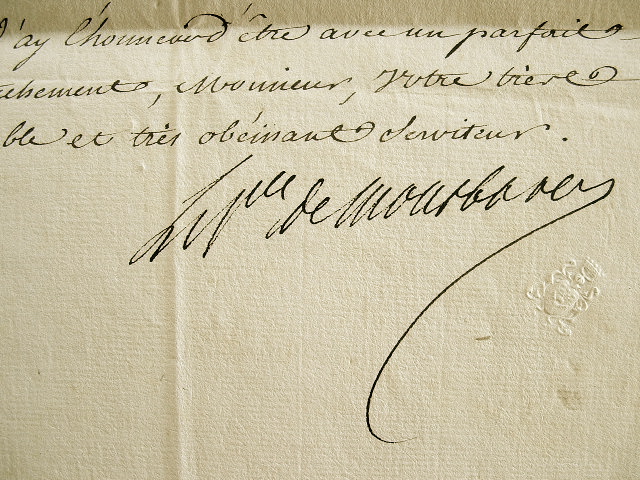 J'ay l'honneur d'être avec un parfait
chement, Monsieur, Votre très
ble et très obéissant Serviteur.
Le P.ce de Montbarey